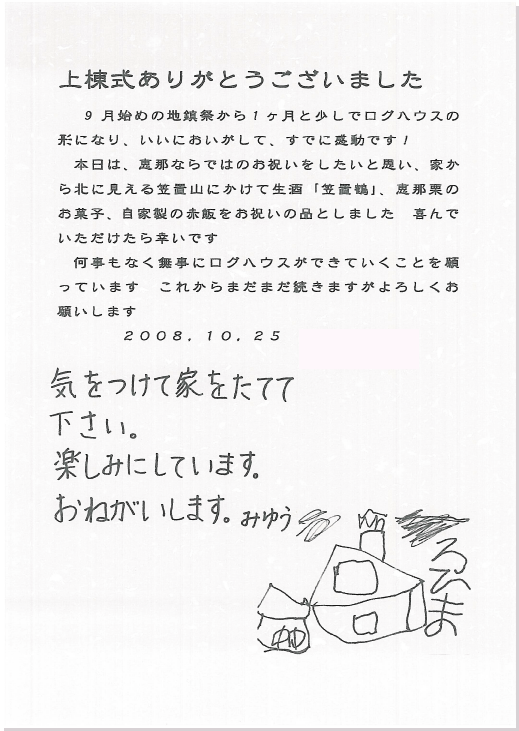 上棟式ありがとうございました
9月始めの地鎮祭から1ヶ月と少しでログハウスの
形になり、いいにおいがして、すでに感動です！
本日は、恵那ならではのお祝いをしたいと思い、家か
ら北に見える笠置山にかけて生酒「笠置鶴」、恵那栗の
お菓子、自家製の赤飯をお祝いの品としました　喜んで
いただけたら幸いです
何事もなく無事にログハウスができていくことを願
っています　これからまだまだ続きますがよろしくお
願いします
2008.10.25
気をつけて家をたてて
下さい。
楽しみにしています。
おねがいします。みゆう